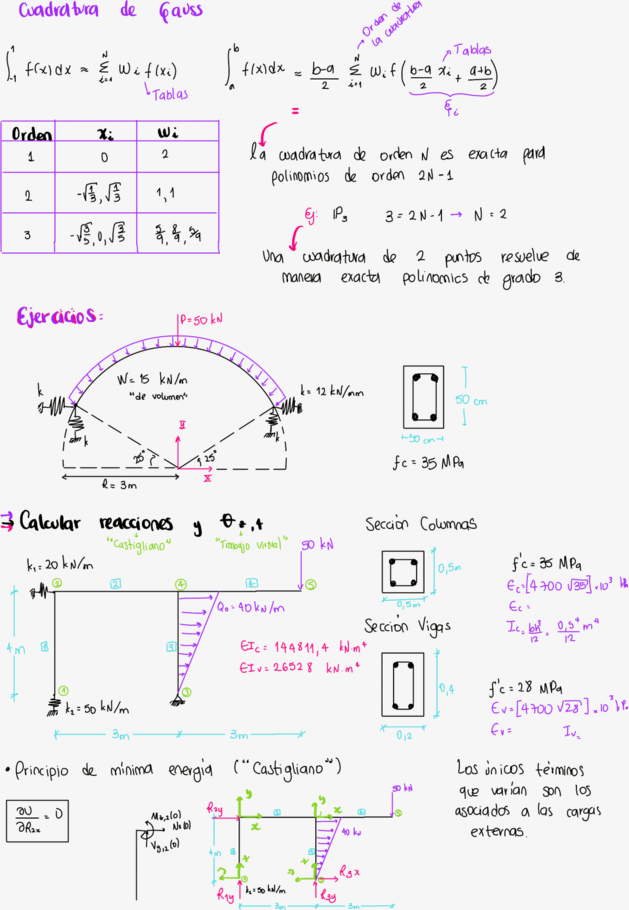 Cuadratura de Gauss
Orden de
la cuadratura
Tablas
∫₋₁¹ f(x)dx ≈ Σᵢ₌₁ᴺ wᵢ f(xᵢ)
∫ₐᵇ f(x)dx ≈ b-a/2 Σᵢ₌₁ᴺ wᵢ f(b-a/2 xᵢ + a+b/2)
Tablas
=
Orden xᵢ wᵢ
1 0 2
2 -√1/3, √1/3 1, 1
3 -√3/5, 0, √3/5 5/9, 8/9, 5/9
La cuadratura de orden N es exacta para
polinomios de orden 2N-1
Ej: IP₃ 3 = 2N-1 → N = 2
Una cuadratura de 2 puntos resuelve de
manera exacta polinomios de grado 3.
Ejercicios:
P=50 kN
W=15 kN/m
"de volumen"
k
k = 12 kN/mm
k
k
Y
X
25°
25°
R = 3m
50 cm
50 cm
f'c = 35 MPa
Calcular reacciones y
"Castigliano" "Trabajo virtual"
50 kN
k₁ = 20 kN/m
② 2 ④ 4 ⑤
Q₀ = 40 kN/m
4m
1
3
EIc = 144811,4 kN·m⁴
EIv = 26528 kN·m⁴
①
③
k₂ = 50 kN/m
3m 3m
Sección Columnas
0,5m
0,5m
f'c = 35 MPa
Ec = [4700 √35].10³
Ec =
Ic = bh³/12 = 0,5⁴/12 m⁴
Sección Vigas
0,4
0,12
f'c = 28 MPa
Ev = [4700 √28].10³
Ev = Iv =
• Principio de mínima energía ("Castigliano")
∂U/∂R₂ₓ = 0
N₂(0)
50 kN
R₂y
y
x
40 kN
4m
R₃x
R₁y
k₂ = 50 kN/m
R₃y
3m 3m
Los únicos términos
que varían son los
asociados a las cargas
externas.